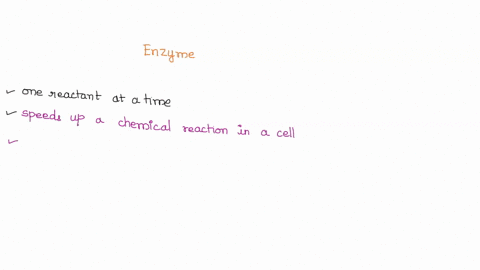 Enzyme
✓ one reactant at a time
✓ speeds up a chemical reaction in a cell
✓